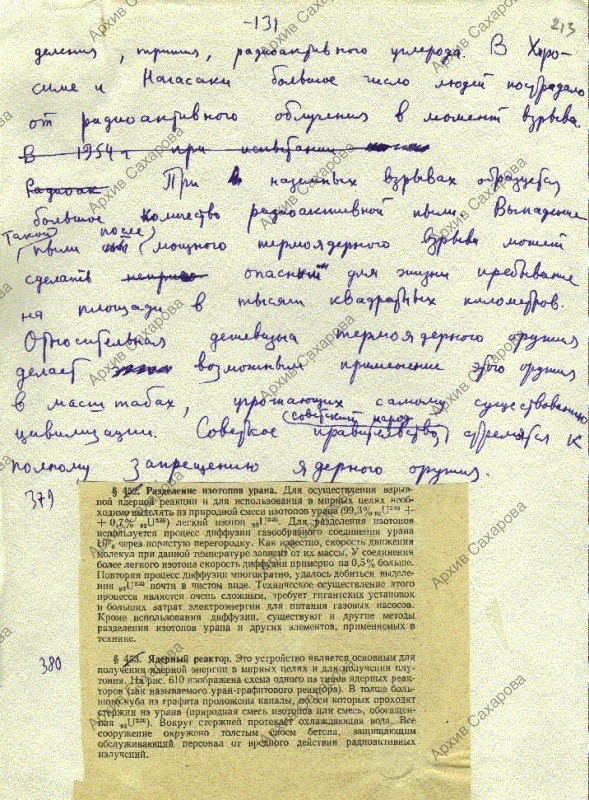 -131
213
деления, трития, радиоактивного углерода. В Хиро-
симе и Нагасаки большое число людей пострадало
от радиоактивного облучения в момент взрыва.
В 1954 г при испытании
Радиоак При наземных взрывах образуется
большое количество радиоактивной пыли. Выпадение
Такой после
пыли мощного термоядерного взрыва может
сделать опасным для жизни пребывание
на площади в тысячи квадратных километров.
Относительная дешевизна термоядерного оружия
делает возможным применение этого оружия
в масштабах, угрожающих самому существованию
советский народ
цивилизации. Советское правительство стремятся к
полному запрещению ядерного оружия.
379
§ 452. Разделение изотопов урана. Для осуществления взрыв-
ной ядерной реакции и для использования в мирных целях необ-
ходимо выделять из природной смеси изотопов урана (99,3% ₉₂U²³⁸ +
+ 0,7% ₉₂U²³⁵) легкий изотоп ₉₂U²³⁵. Для разделения изотопов
используется процесс диффузии газообразного соединения урана
UF₆ через пористую перегородку. Как известно, скорость движения
молекул при данной температуре зависит от их массы. У соединения
более легкого изотопа скорость диффузии примерно на 0,5% больше.
Повторяя процесс диффузии многократно, удалось добиться выделе-
ния ₉₂U²³⁵ почти в чистом виде. Техническое осуществление этого
процесса является очень сложным, требует гигантских установок
и больших затрат электроэнергии для питания газовых насосов.
Кроме использования диффузии, существуют и другие методы
разделения изотопов урана и других элементов, применяемых в
технике.
380
§ 453. Ядерный реактор. Это устройство является основным для
получения ядерной энергии в мирных целях и для получения плу-
тония. На рис. 610 изображена схема одного из типов ядерных реак-
торов (так называемого уран-графитового реактора). В толще боль-
шого куба из графита проложены каналы, по оси которых проходят
стержни из урана (природная смесь изотопов или смесь, обогащен-
ная ₉₂U²³⁵). Вокруг стержней протекает охлаждающая вода. Все
сооружение окружено толстым слоем бетона, защищающим
обслуживающий персонал от вредного действия радиоактивных
излучений.
Архив Сахарова